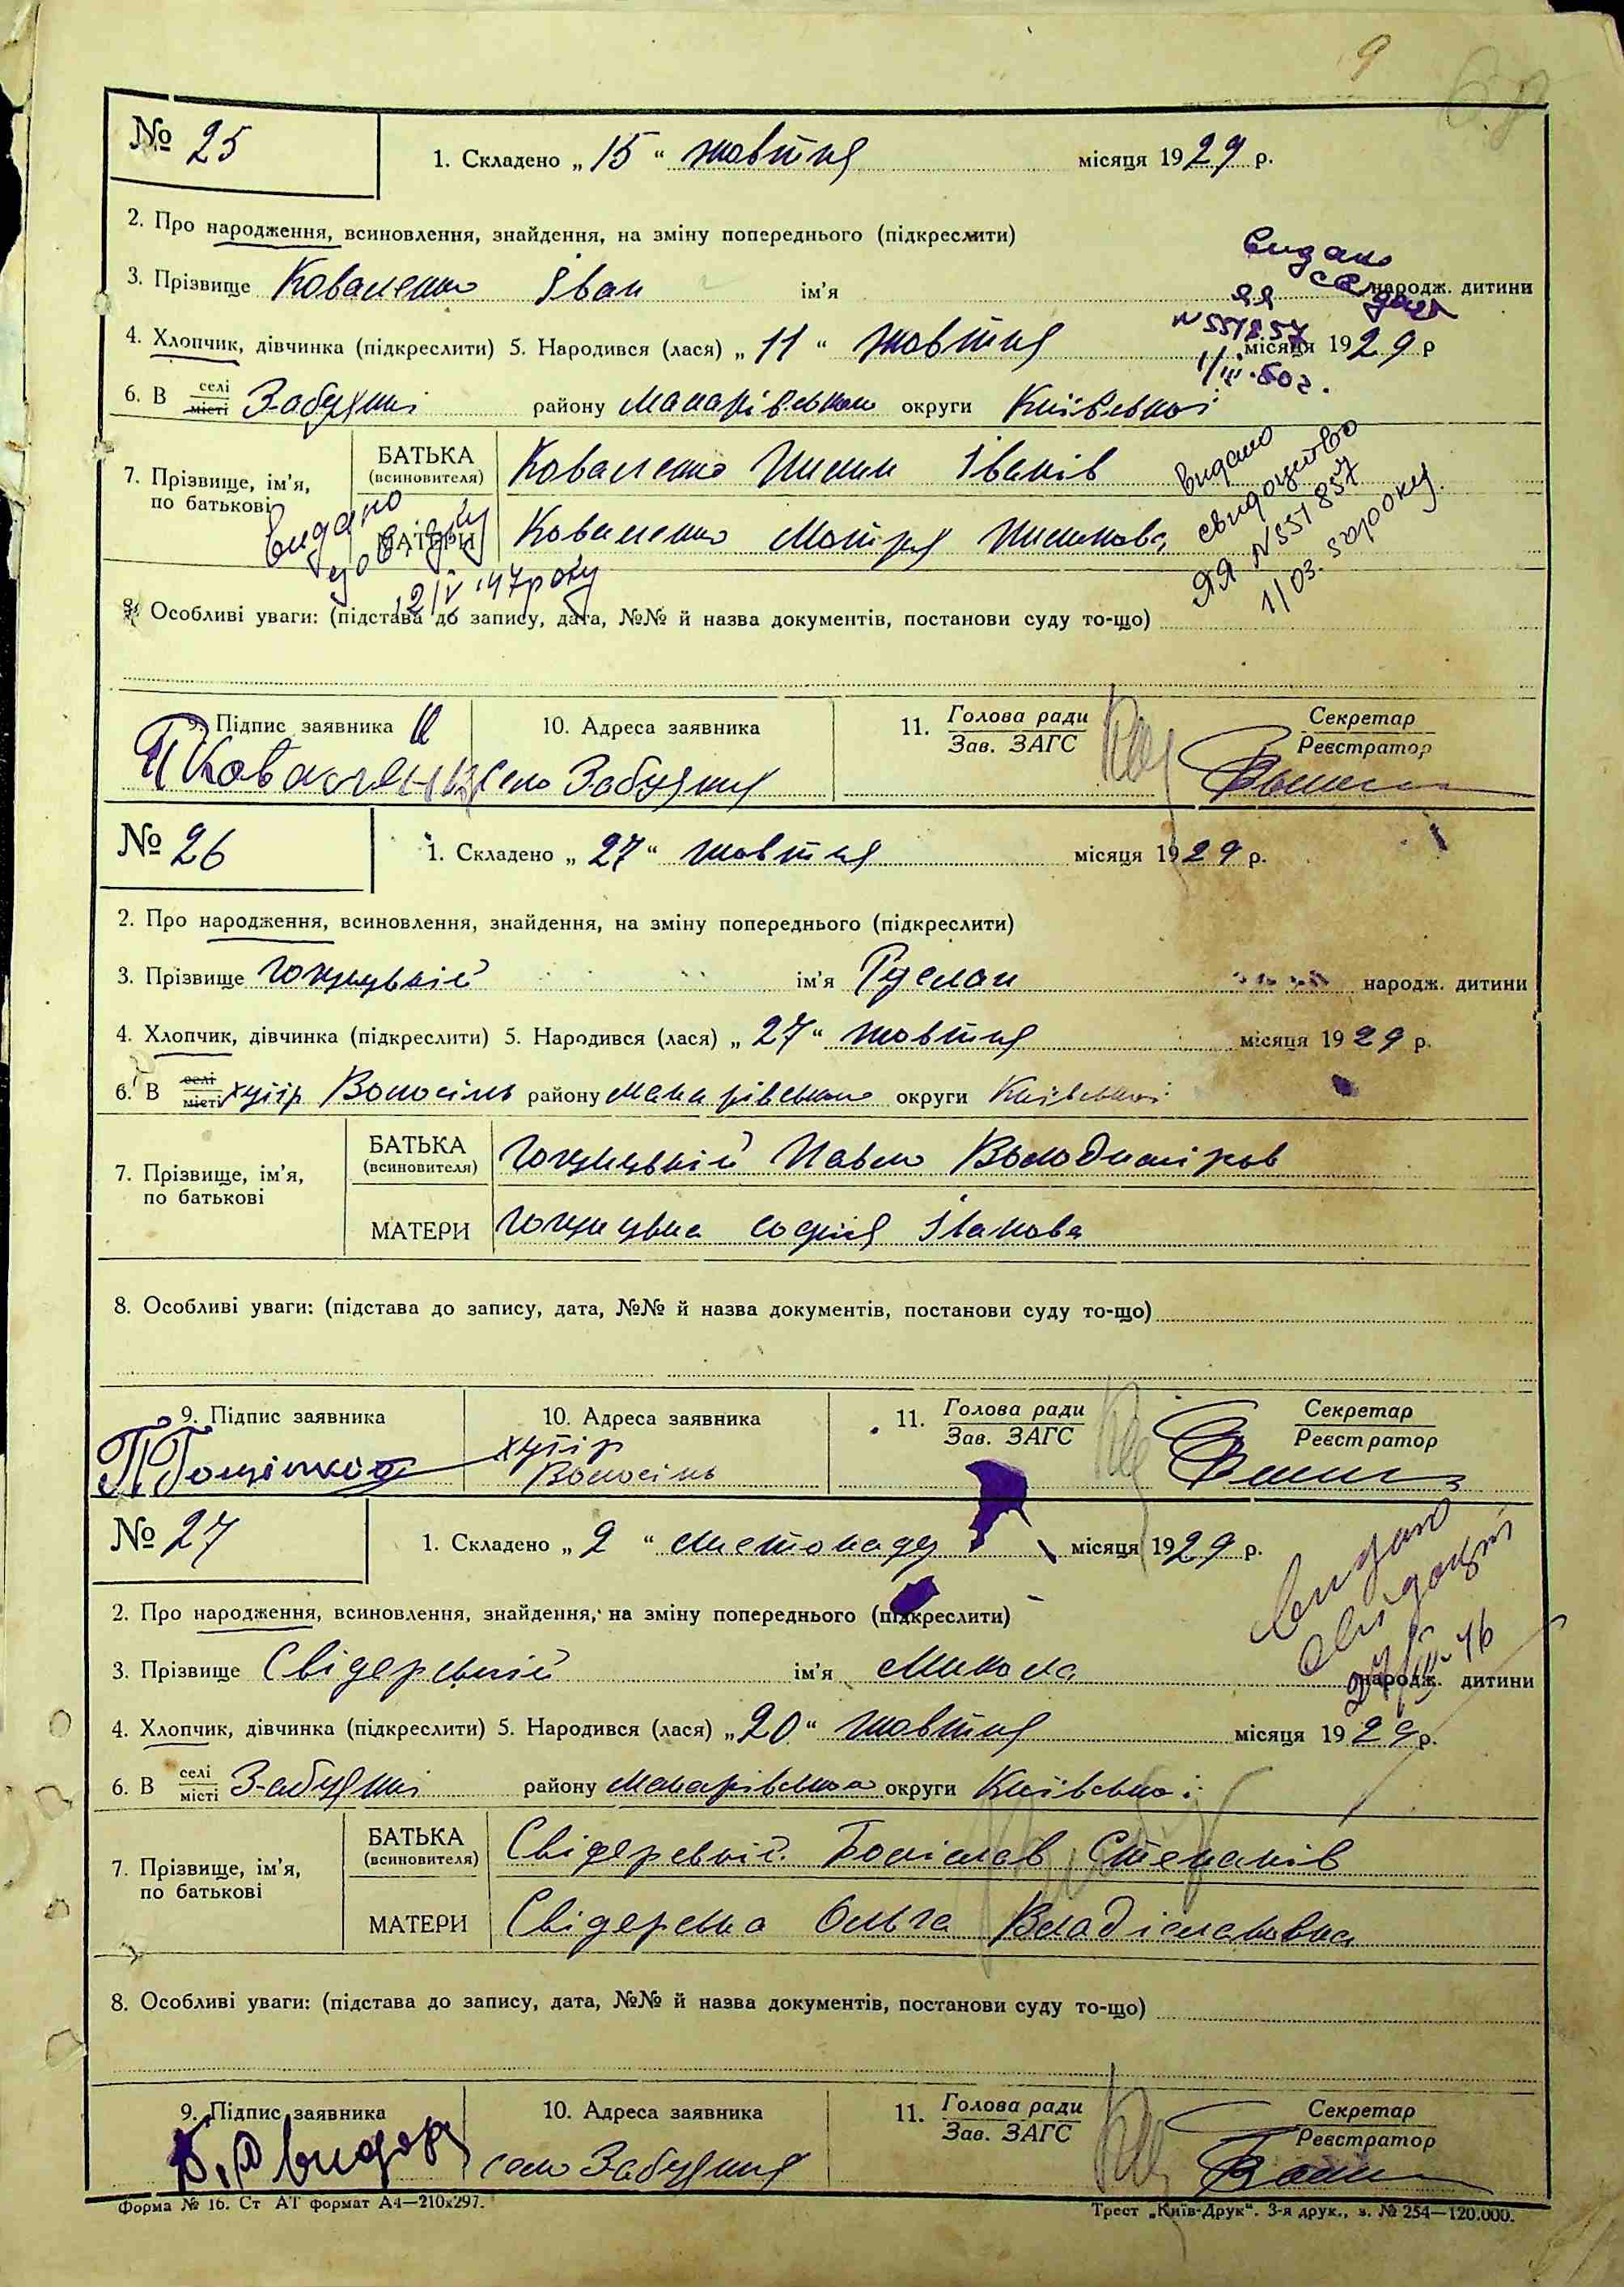 9
№ 25
1. Складено „15“ жовтня місяця 1929 р.
2. Про народження, всиновлення, знайдення, на зміну попереднього (підкреслити)
видано
3. Прізвище Коваленко Іван ім'я народж. дитини
ЯЯ
N 551857
4. Хлопчик, дівчинка (підкреслити) 5. Народився (лася) „11“ жовтня місяця 1929 р
1/III.50г.
6. В селі місті Забуянні району Макарівського округи Київської
7. Прізвище, ім'я, по батькові
БАТЬКА (всиновителя) Коваленко Пилип Іванів
МАТЕРИ Коваленко Мотря Пилипова
видано
свидоцтво
ЯЯ N 551857
1/03. 50 року.
видано
довідку
2/V 47 року
8. Особливі уваги: (підстава до запису, дата, №№ й назва документів, постанови суду то-що)
9. Підпис заявника
П Коваленко
10. Адреса заявника
село Забуяння
11. Голова ради
Зав. ЗАГС
Секретар
Реєстратор
№ 26
1. Складено „27“ жовтня місяця 1929 р.
2. Про народження, всиновлення, знайдення, на зміну попереднього (підкреслити)
3. Прізвище ім'я Руслан народж. дитини
4. Хлопчик, дівчинка (підкреслити) 5. Народився (лася) „27“ жовтня місяця 1929 р.
6. В селі місті хутір Волосінь району Макарівського округи Київської
7. Прізвище, ім'я, по батькові
БАТЬКА (всиновителя) Павло Володиміров
МАТЕРИ Софія Іванова
8. Особливі уваги: (підстава до запису, дата, №№ й назва документів, постанови суду то-що)
9. Підпис заявника
10. Адреса заявника
хутір
Волосінь
11. Голова ради
Зав. ЗАГС
Секретар
Реєстратор
№ 27
1. Складено „2“ листопаду місяця 1929 р.
видано
2. Про народження, всиновлення, знайдення, на зміну попереднього (підкреслити)
3. Прізвище Свідерський ім'я Микола народж. дитини
4. Хлопчик, дівчинка (підкреслити) 5. Народився (лася) „20“ жовтня місяця 1929 р.
6. В селі місті Забуянні району Макарівського округи Київської
7. Прізвище, ім'я, по батькові
БАТЬКА (всиновителя) Свідерський Болілав Степанів
МАТЕРИ Свідерська Ольга Владіславовна
8. Особливі уваги: (підстава до запису, дата, №№ й назва документів, постанови суду то-що)
9. Підпис заявника
10. Адреса заявника
село Забуяння
11. Голова ради
Зав. ЗАГС
Секретар
Реєстратор
Форма № 16. Ст АТ формат А4—210x297.
Трест „Київ-Друк“. 3-я друк., з. № 254—120.000.